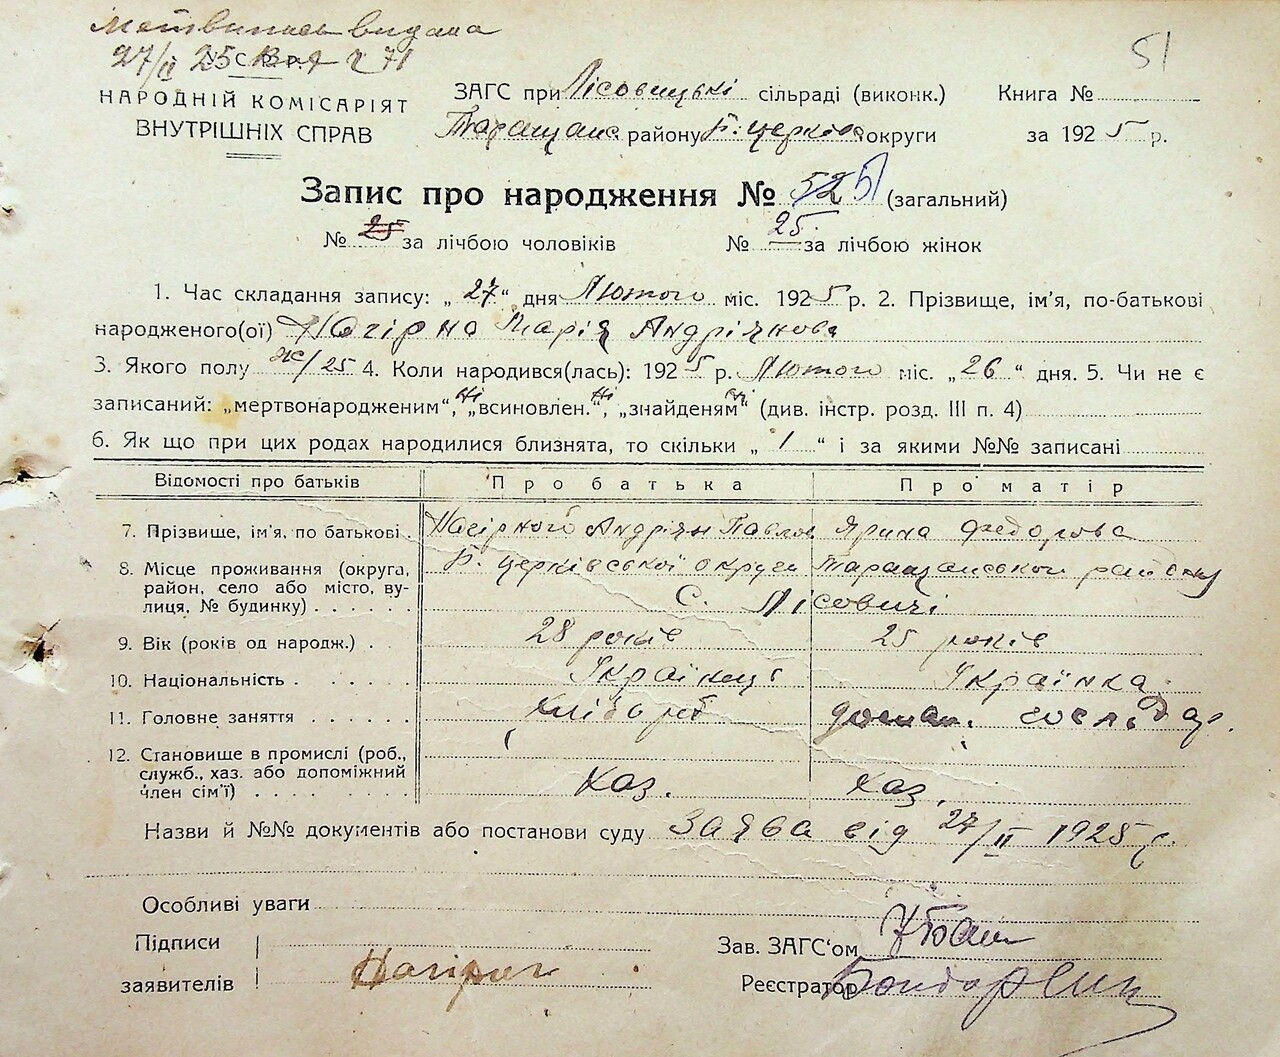 видана
51
27/II 25
У.С.Р.Р.
№ 71
НАРОДНІЙ КОМІСАРІЯТ
ВНУТРІШНІХ СПРАВ
ЗАГС при Лісовицькі сільраді (виконк.) Книга №
Таращанс. району Б. церків. округи за 1925 р.
Запис про народження № 52 51 (загальний)
№ 25 за лічбою чоловіків № 25. за лічбою жінок
1. Час складання запису: „27“ дня Лютого міс. 1925 р. 2. Прізвище, ім’я, по-батькові
народженого(ої) Марія Андріянова
3. Якого полу ж/25 4. Коли народився(лась): 1925 р. Лютого міс. „26“ дня. 5. Чи не є
записаний: „мертвонародженим“, ні „всиновлен.“, ні „знайденям“ ні (див. інстр. розд. III п. 4)
6. Як що при цих родах народилися близнята, то скільки „1“ і за якими №№ записані
Відомості про батьків Про батька Про матір
7. Прізвище, ім’я, по батькові. Нагірного Андріян Павлов Ярина Федорова
8. Місце проживання (округа, Б. церківської округи Таращанського району
район, село або місто, ву-
лиця, № будинку) С. Лісовичі
9. Вік (років од народж.) 28 років 25 років
10. Національність Українці Українка
11. Головне заняття хлібороб домаш. господар.
12. Становище в промислі (роб.,
служб., хаз. або допоміжний
член сім’ї) Хаз. Хаз.
Назви й №№ документів або постанови суду Заява від 27/II 1925 р.
Особливі уваги
Підписи
заявителів Нагірни
Зав. ЗАГС‘ом
Реєстратор